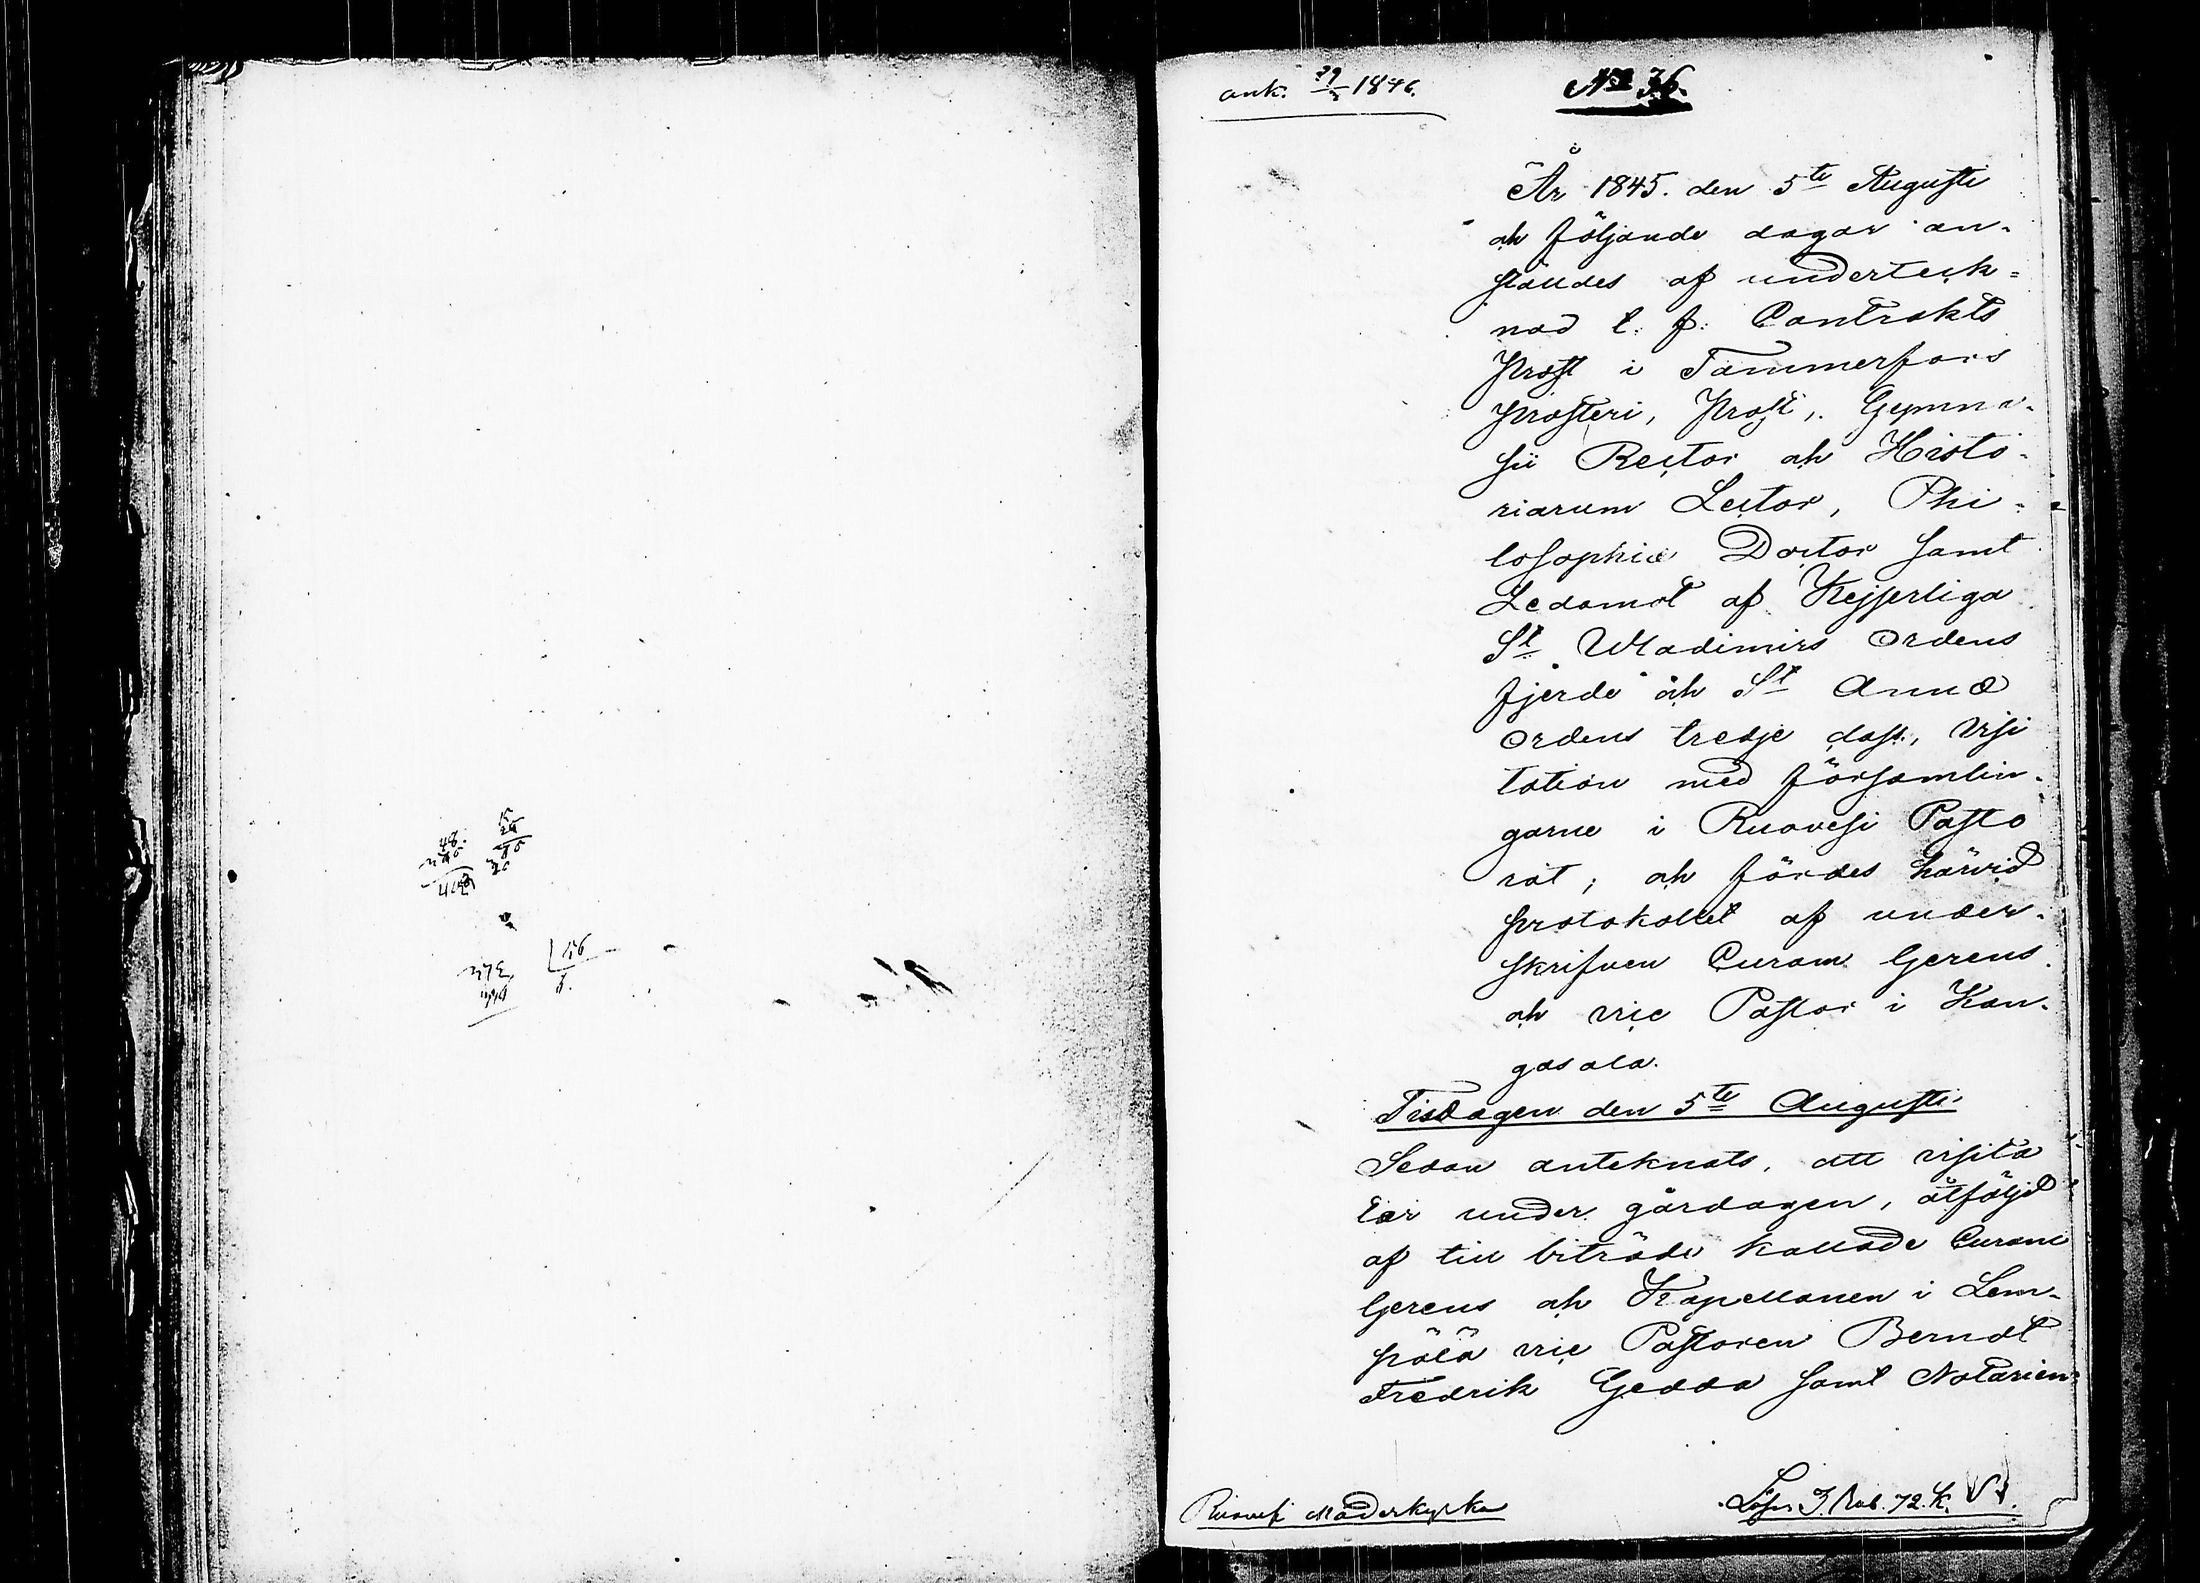 ank. 29/5 1846.
No 36.
År 1845. den 5te Augusti
och följande dagar an-
stäldes af underteck=
nad t. f. Contrakts
Prost i Tammerfors
Prosteri, Prost, Gymna-
sii Rector och Histo-
riarum Lector, Phi-
losophiæ Doctor samt
Ledamot af Kejserliga
St Wladimirs Ordens
fjerde och St Annæ
Ordens tredje class, visi
tation med församlin-
garne i Ruovesi Pasto
rat; och fördes härvid
protokollet af under-
skrifven Curam Gerens
och vice Pastor i Kan-
gasala.
Tisdagen den 5te Augusti
Sedan anteknats, att visita
tor under gårdagen, åtföljd
af till biträde kallade Curam
Gerens och Kapellanen i Lem-
pälä vice Pastoren Berndt
Fredrik Gedda samt Notarien
Ruovesi Moderkyrka
Lösn 3. Rub. 72. K.
48
15
20
56